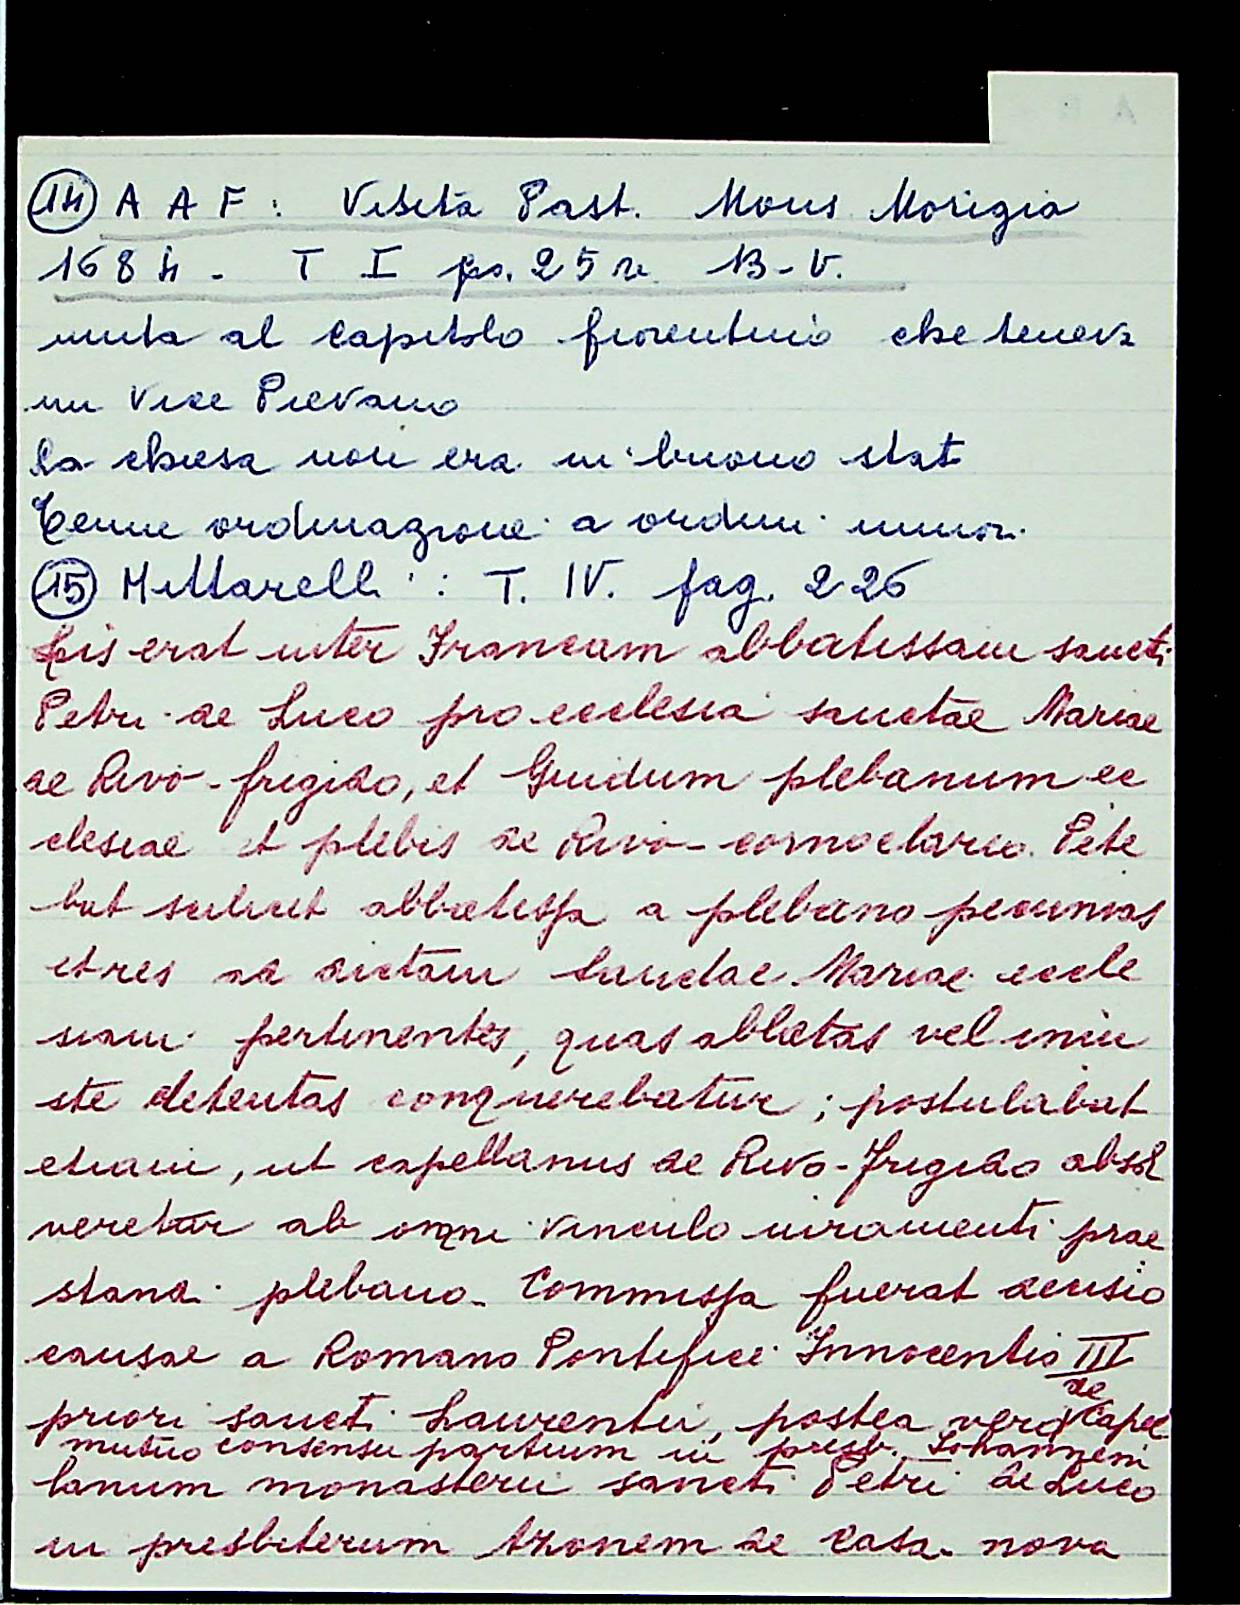 14 A A F : Visita Past. Mons Morigia
1684 - T I pa. 25 r. B-V.
unita al Capitolo fiorentino che teneva
un Vice Pievano
la chiesa non era in buono stat
Tenne ordinazione a ordini minori
15 Mittarelli : T. IV. fag. 226
Lis erat inter Francam abbatissam sancti
Petri de Luco pro ecclesia sanctae Mariae
de Rivo-frigido, et Guidum plebanum ec
clesiae et plebis de Rivo-cornoclario. Pete
bat scilicet abbatissa a plebano pecunias
et res ad dictam Sanctae Mariae eccle
siam pertinentes, quas ablatas vel iniu
ste detentas conquerebatur ; postulabat
etiam, ut capellanus de Rivo-Frigido absol
veretur ab omni vinculo iuramenti prae
standi plebano. Commissa fuerat decisio
causae a Romano Pontifice Innocentio III
priori sancti Laurentii, postea vero de Capel
mutuo consensu partium in presb. Iohannem
lanum monasterii sancti Petri de Luco
in presbiterum Azonem de Casa-nova